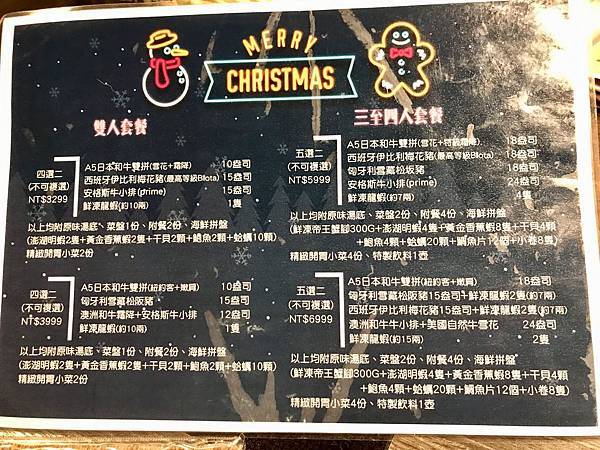 MERRY
CHRISTMAS
雙人套餐
四選二
(不可複選)
NT$3299
A5日本和牛雙拼(雪花+霜降) 10盎司
西班牙伊比利梅花豬(最高等級Blota) 15盎司
安格斯牛小排(prime) 15盎司
鮮凍龍蝦(約10兩) 1隻
以上均附原味湯底、菜盤2份、附餐2份、海鮮拼盤
(澎湖明蝦2隻+黃金香蕉蝦2隻+干貝2顆+鮑魚2顆+蛤蠣10顆)
精緻開胃小菜2份
四選二
(不可複選)
NT$3999
A5日本和牛雙拼(紐約客+嫩肩) 10盎司
匈牙利雪藏松阪豬 15盎司
澳洲和牛霜降+安格斯牛小排 12盎司
鮮凍龍蝦(約10兩) 1隻
以上均附原味湯底、菜盤1份、附餐2份、海鮮拼盤
(澎湖明蝦2隻+黃金香蕉蝦2隻+干貝2顆+鮑魚2顆+蛤蠣10顆)
精緻開胃小菜2份
三至四人套餐
五選二
(不可複選)
NT$5999
A5日本和牛雙拼(雪花+特級霜降) 18盎司
西班牙伊比利梅花豬(最高等級Blota) 18盎司
匈牙利雪藏松坂豬 18盎司
安格斯牛小排(prime) 24盎司
鮮凍龍蝦(約7兩) 4隻
以上均附原味湯底、菜盤2份、附餐4份、海鮮拼盤
(鮮凍帝王蟹腳300G+澎湖明蝦4隻+黃金香蕉蝦8隻+干貝4顆
+鮑魚4顆+蛤蠣20顆+鯛魚片12個+小卷8隻)
精緻開胃小菜4份、特製飲料1壺
五選二
(不可複選)
NT$6999
A5日本和牛雙拼(紐約客+嫩肩) 18盎司
匈牙利雪藏松阪豬15盎司+鮮凍龍蝦2隻(約7兩)
西班牙伊比利梅花豬15盎司+鮮凍龍蝦2隻(約7兩)
澳洲和牛牛小排+美國自然牛雪花 24盎司
鮮凍龍蝦(約15兩) 2隻
以上均附原味湯底、菜盤2份、附餐4份、海鮮拼盤
(鮮凍帝王蟹腳300G+澎湖明蝦4隻+黃金香蕉蝦8隻+干貝4顆
+鮑魚4顆+蛤蠣20顆+鯛魚片12個+小卷8隻)
精緻開胃小菜4份、特製飲料1壺